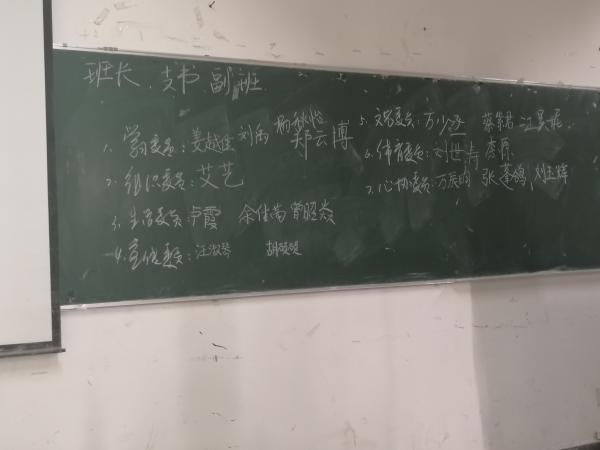 班长 支书 副班
1. 学习委员：姜越 刘雨 杨秋怡 郑云博
2. 组织委员：艾艺
3. 生活委员：卢霞 余佳芮 曾昭焱
4. 宣传委员：汪淑琴 胡硕硕
5. 文艺委员：万少 蔡紫君 江
6. 体育委员：刘世 李
7. 心协委员：万辰昀 张莲鸽 刘玉辉